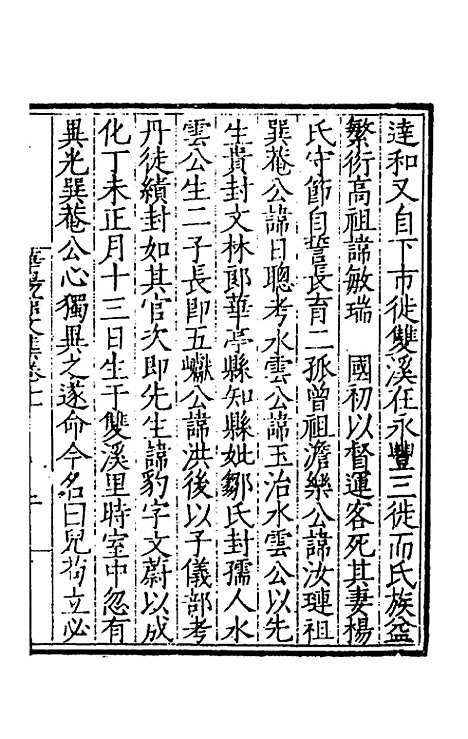 達和又自下市徙雙溪在永豐三徙而氏族益
繁衍高祖諱敏瑞　國初以督運客死其妻楊
氏守節自誓長育二孤曾祖澹樂公諱汝璉祖
巽菴公諱日聰考水雲公諱玉治水雲公以先
生貴封文林郎華亭縣知縣妣鄒氏封孺人水
雲公生二子長即五嶽公諱洪後以子儀部考
丹徒績封如其官次即先生諱豹字文蔚以成
化丁未正月十三日生于雙溪里時室中忽有
異光巽菴公心獨異之遂命今名曰兒揣立必